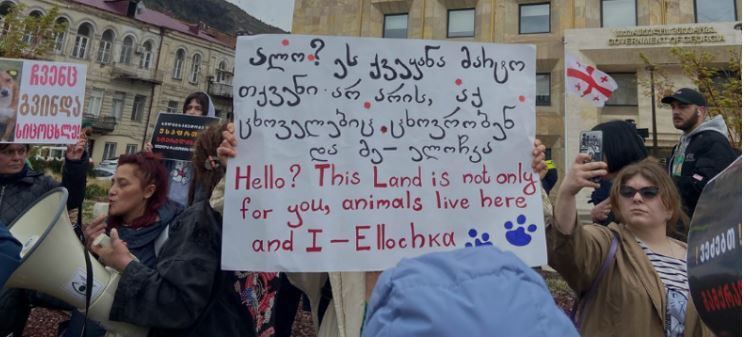 ალო? ეს ქვეყანა მარტო
თქვენი არ არის, აქ
ცხოველებიც ცხოვრობენ
და მე – ელოჩკა
Hello? This Land is not only
for you, animals live here
and I – Ellochka
ჩვენც
გვინდა
სიცოცხლე
GOVERNMENT OF GEORGIA